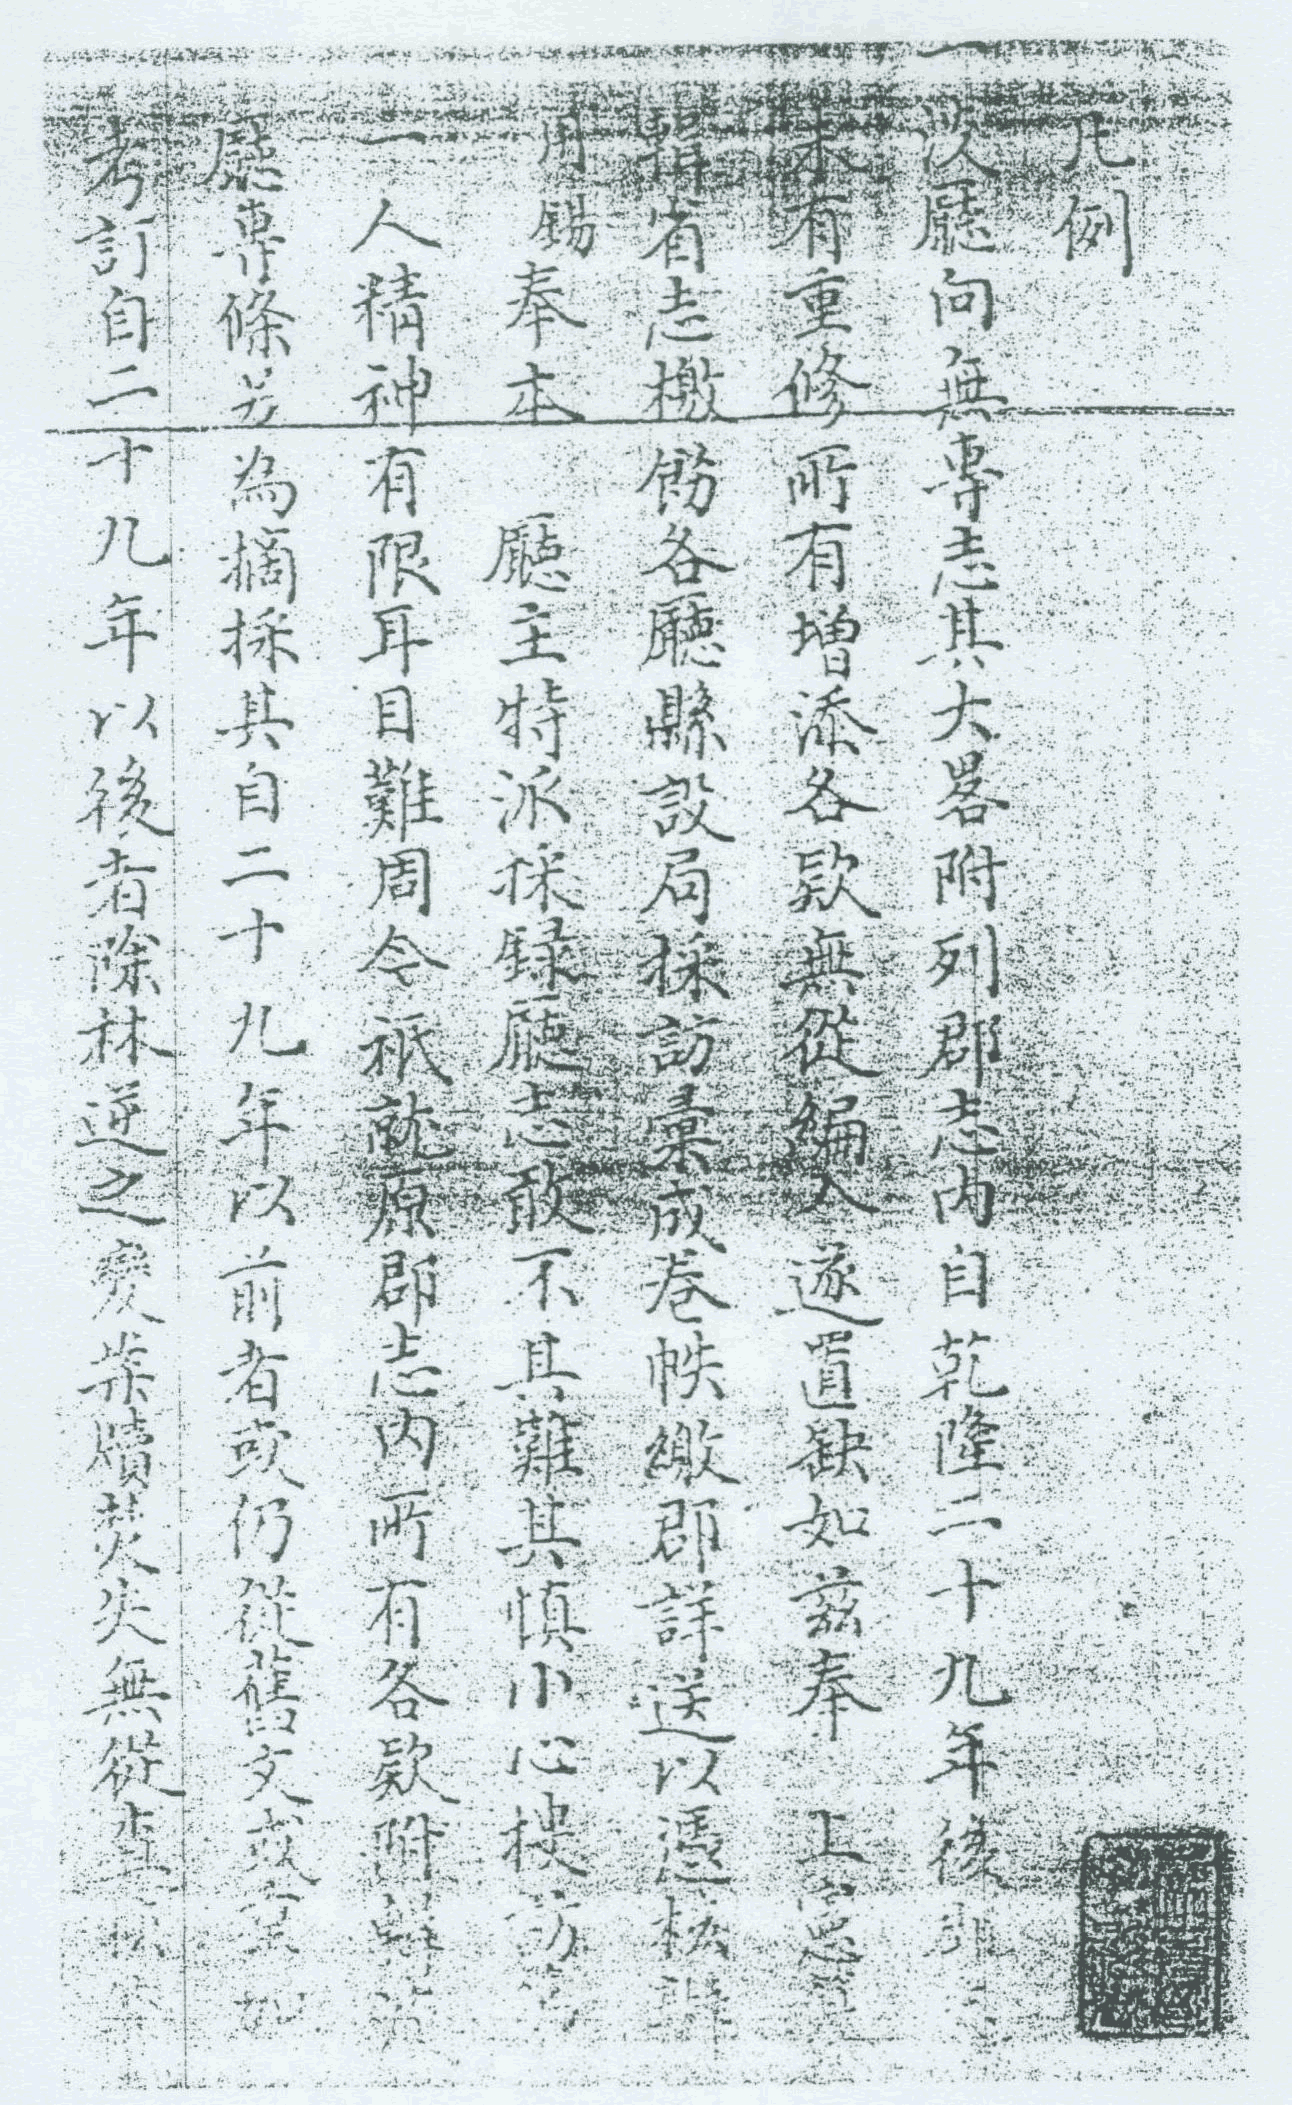 凡例
一淡廳向無專志其大畧附列郡志內自乾隆二十九年後
未有重修所有增添各欵無從編入遂置缺如茲奉 上憲
輯省志檄飭各廳縣設局採訪彙成卷帙繳郡詳送以憑核
用錫奉本 廳主特派採錄廳志敢不其難其慎小心搜訪
一人精神有限耳目難周今祇就原郡志內所有各欵附
廳專條另為摘採其自二十九年以前者或仍從舊文或
考訂自二十九年以後者除林逆之變案牘焚失無從查